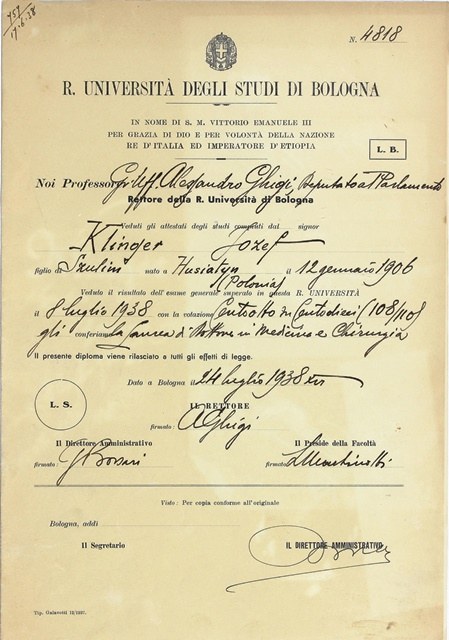 757
17-6-38
N. 4818
R. UNIVERSITÀ DEGLI STUDI DI BOLOGNA
IN NOME DI S. M. VITTORIO EMANUELE III
PER GRAZIA DI DIO E PER VOLONTÀ DELLA NAZIONE
RE D'ITALIA ED IMPERATORE D'ETIOPIA
L. B.
Noi Professor Gr. Uff. Alessandro Ghigi, Deputato at Parlamento
Rettore della R. Università di Bologna
Veduti gli attestati degli studi compiuti dal signor
Klinger Jozef
figlio di nato a Husiatyn (Polonia) il 12 gennaio 1906
Veduto il risultato dell'esame generale superato in questa R. UNIVERSITÀ
il 8 luglio 1938 con la votazione Centotto su Centodieci (108/110)
gli conferiamo la Laurea di Dottore in Medicina e Chirurgia
Il presente diploma viene rilasciato a tutti gli effetti di legge.
Dato a Bologna il 24 luglio 1938 XVI
L. S.
IL RETTORE
firmato: A Ghigi
Il Direttore Amministrativo
Il Preside della Facoltà
firmato: G Borsari
firmato: L Martinotti
Visto: Per copia conforme all'originale
Bologna, addì
Il Segretario
IL DIRETTORE AMMINISTRATIVO
Tip. Galavotti